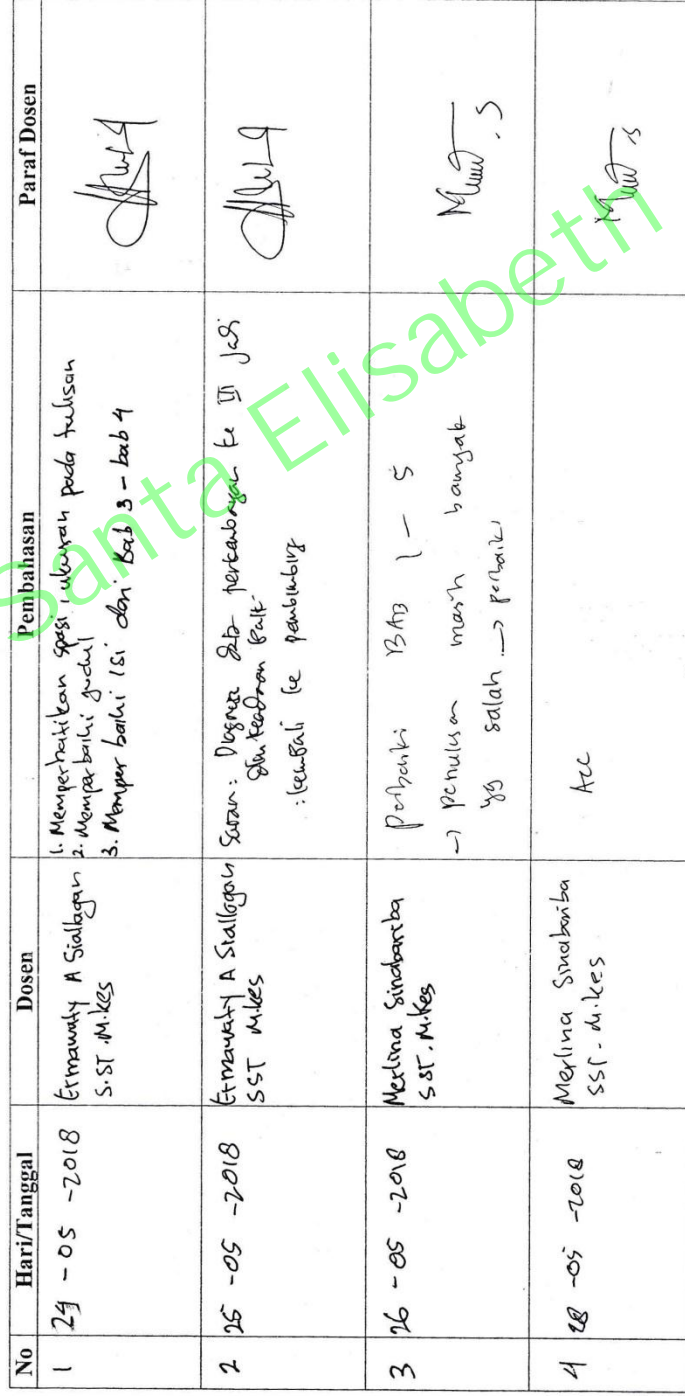 No Hari/Tanggal Dosen Pembahasan Paraf Dosen
1 24 - 05 - 2018 Ermawaty A Siallagan
S.ST. M.Kes
1. Memperhatikan spasi, ukuran pada tulisan
2. Memperbaiki judul
3. Memperbaiki isi dari Bab 3 - bab 4
2 25 - 05 - 2018 Ermawaty A Siallagan
SST M.Kes
Saran: Diagnosa data perkembangan ke III jadi
dlm keadaan baik
: kembali ke pembimbing
3 26 - 05 - 2018 Merlina Sinabariba
S.ST. M.Kes
Perbaiki BAB 1 - 5
→ penulisan masih banyak
yg salah → perbaiki
4 28 - 05 - 2018 Merlina Sinabariba
SST. M.Kes
Acc
Santa Elisabeth